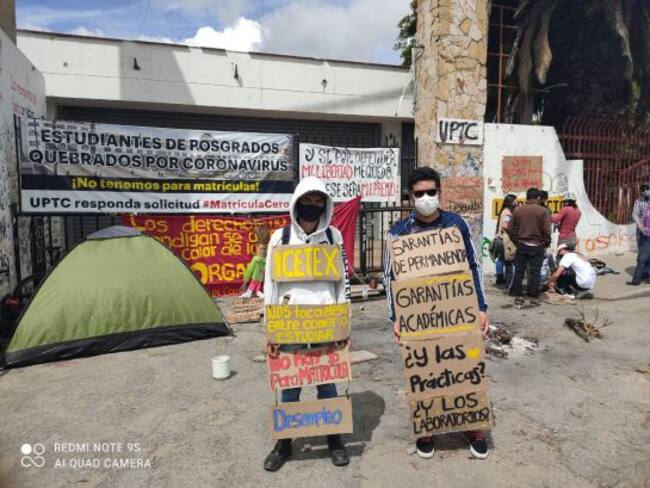 ESTUDIANTES DE POSGRADOS
QUEBRADOS POR CORONAVIRUS
¡No tenemos para matrículas!
UPTC responda solicitud #MatrículaCero
Y SI POR DEFENDER
MI LIBERTAD ME QUEDO
ESE SERÁ MI PREMIO
UPTC
Los derechos
calor de la
ORGA
ICETEX
NOS toca elegir
entre comer o
ESTUDIAR
No hay
Para MATRICULA
Desempleo
GARANTÍAS
DE PERMANENCIA
GARANTÍAS
ACADÉMICAS
¿Y LAS
Prácticas?
¿Y LOS
LABORATORIOS?
REDMI NOTE 9S
AI QUAD CAMERA